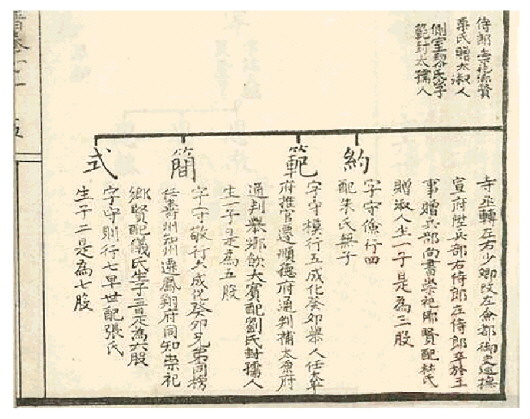 侍郎
氏贈太淑人
側室郭氏以子
範封太孺人
寺丞轉左右少卿改左僉都御史巡撫
宣府陞兵部右侍郎左侍郎卒於王
事贈兵部尚書崇祀鄉賢配杜氏
贈淑人生一子是為三股
約
字守條行四
配朱氏無子
範
字守模行五成化癸卯舉人任
府推官遷順德府通判補太原府
通判舉鄉飲大賓配劉氏封孺人
生一子是為五股
簡
字守敬行六成化癸卯兄弟同榜
任壽州州遷鳳翔府同知崇祀
鄉賢配儀氏生子三是為六股
式
字守則行七早世配張氏
生子二是為七股
五